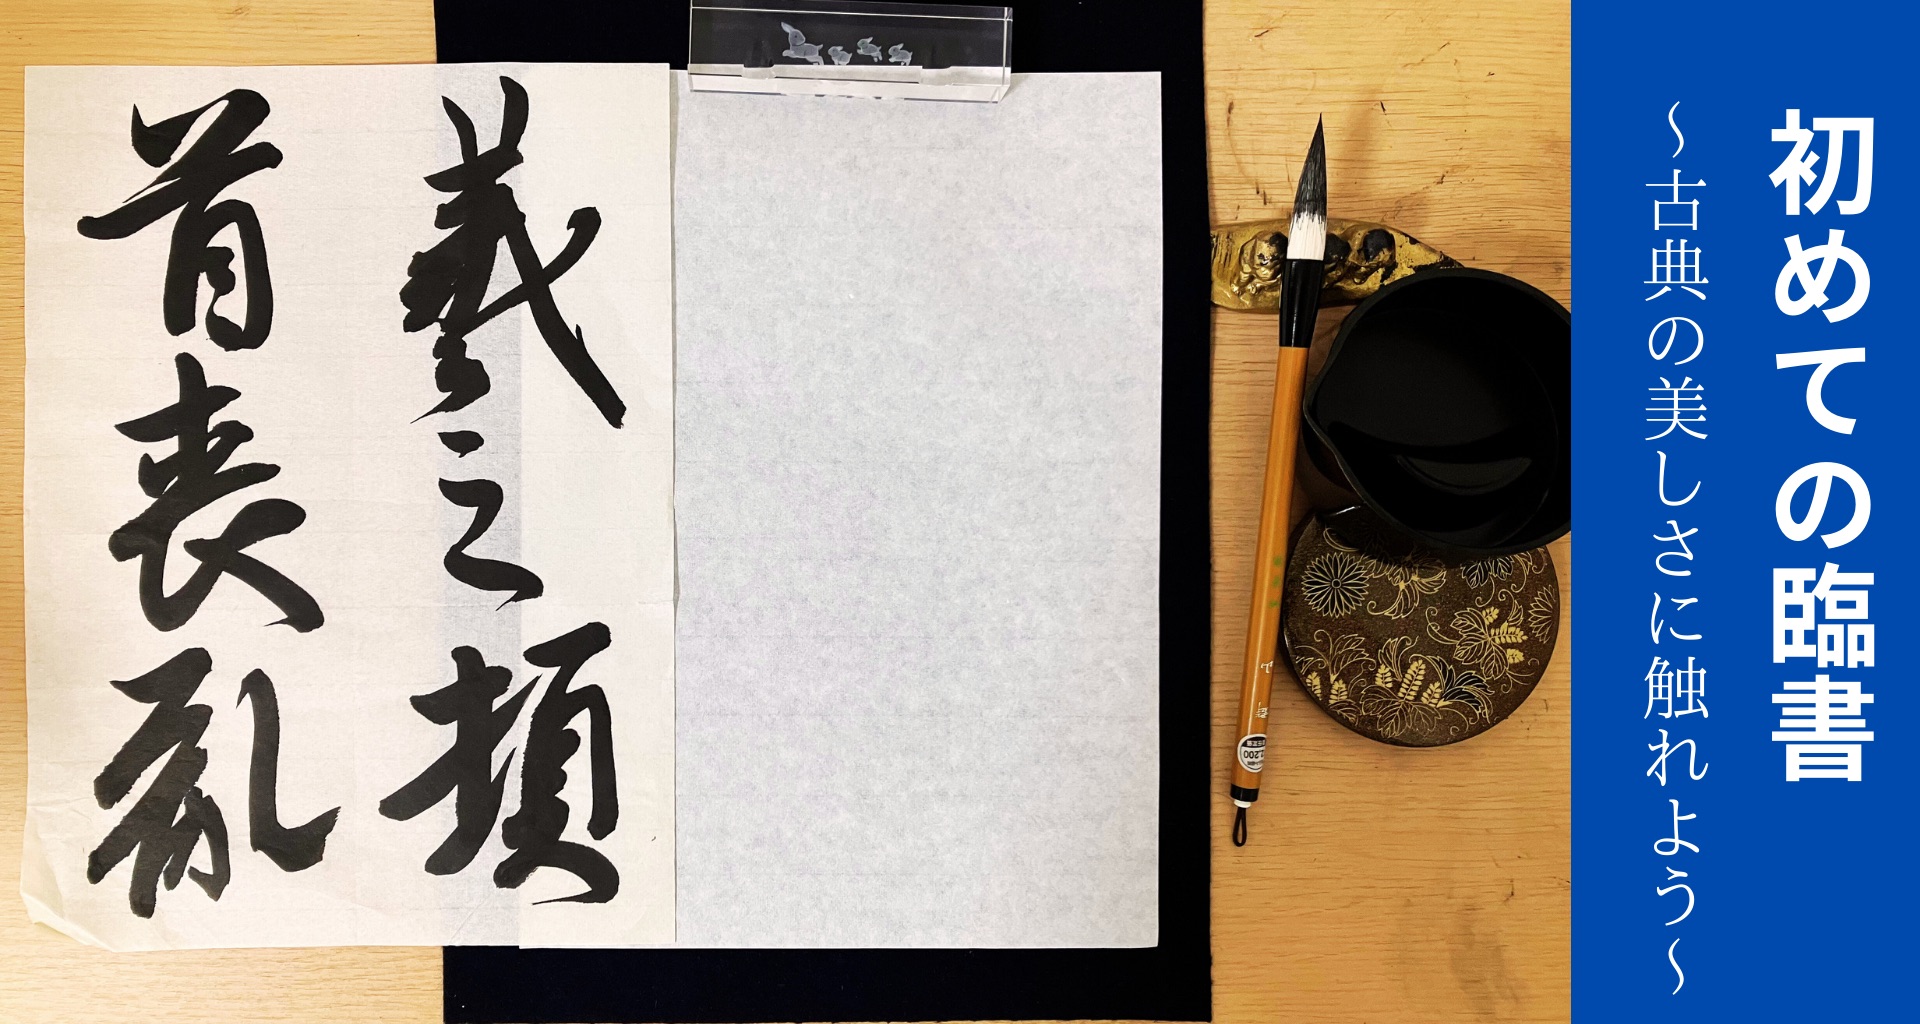 初めての臨書
〜古典の美しさに触れよう〜
羲之頓
首喪亂
2,200